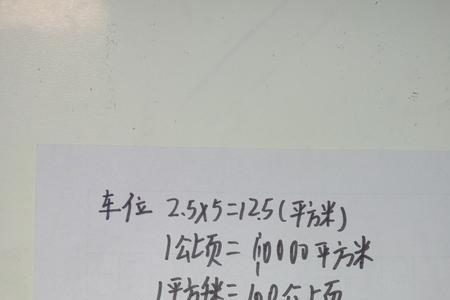 车位 2.5×5=12.5(平方米)
1公顷= 10000平方米
1平方米=100公顷